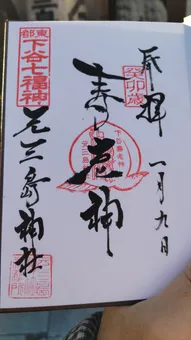 奉拝
癸卯歳
一月九日
寿老神
東都
下谷七福神
元三島神社